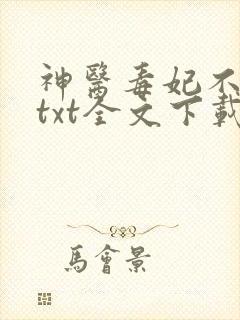 神醫毒妃不
txt全文下載
馬會景